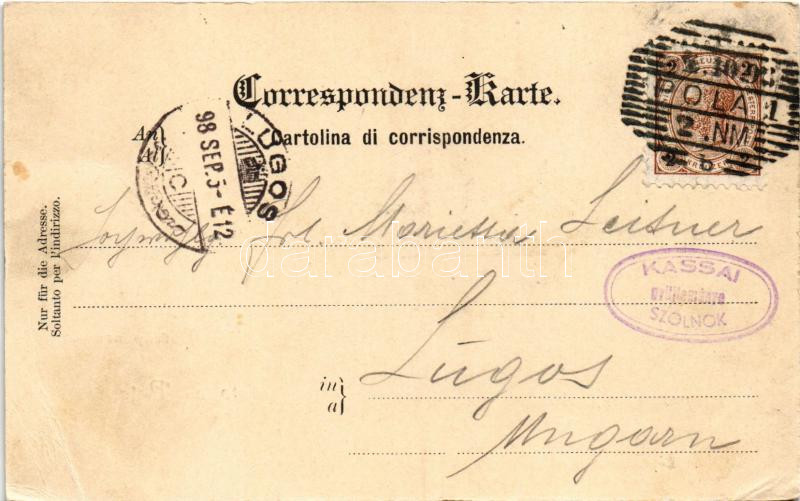 Correspondenz-Karte.
Cartolina di corrispondenza.
An
Al
LUGOS
98 SEP. 5- É12
POLA 1
2. NM
Nur für die Adresse.
Soltanto per l'indirizzo.
Frl. Marietta Leitner
KASSAI
gyűjteménye
SZOLNOK
in
a
Lúgos
Ungarn
darabanth